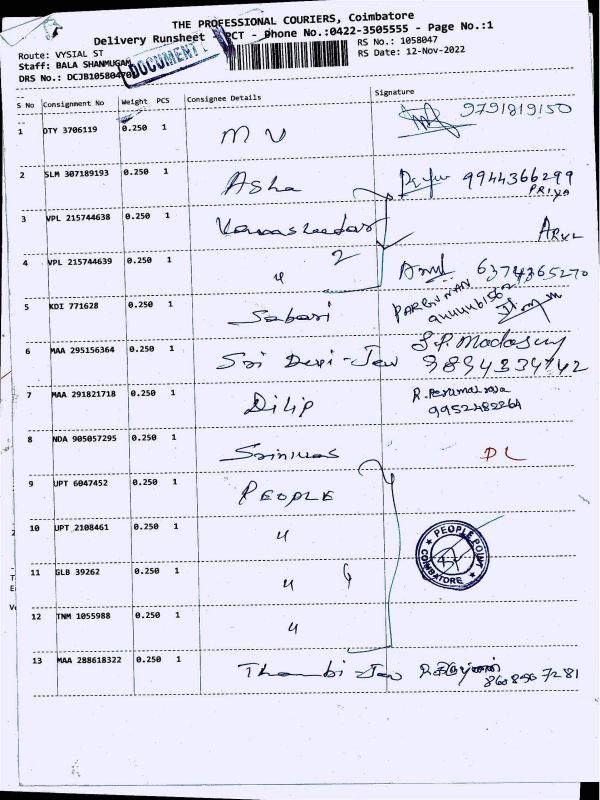 THE PROFESSIONAL COURIERS, Coimbatore
Delivery Runsheet - PCT - Phone No.:0422-3505555 - Page No.:1
Route: VYSIAL ST
RS No.: 1058047
Staff: BALA SHANMUGAM
RS Date: 12-Nov-2022
DRS No.: DCJB1058047
DOCUMENT
S No Consignment No Weight PCS Consignee Details Signature
1 DTY 3706119 0.250 1 M V 9791819150
2 SLM 307189193 0.250 1 Asha 9944366299
PRIYA
3 VPL 215744638 0.250 1 ARUL
4 VPL 215744639 0.250 1 " 2 Arul 6374365270
5 KDI 771628 0.250 1 Sabari
6 MAA 295156364 0.250 1 Sri Devi - Jew S.P. Madasamy
9894334742
7 MAA 291821718 0.250 1 Dilip R. Perumal raja
9952482264
8 NDA 905057295 0.250 1 Srinivas DL
9 UPT 6047452 0.250 1 PEOPLE
10 UPT 2108461 0.250 1 "
PEOPLE POINT
COIMBATORE
11 GLB 39262 0.250 1 " 6
12 TNM 1055988 0.250 1 "
13 MAA 288618322 0.250 1 Thambi - Jew
8608567281